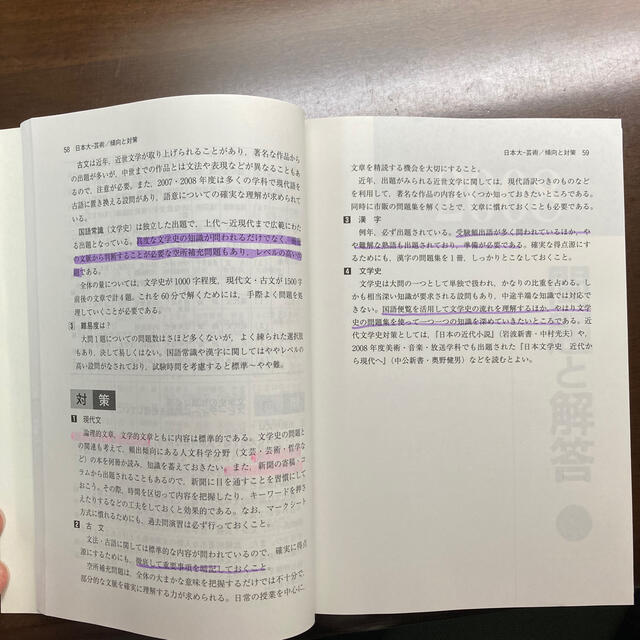 58 日本大-芸術/傾向と対策
古文は近年、近世文学が取り上げられることがあり、著名な作品から
の出題が多いが、中世までの作品とは文法や表現などが異なることもあ
るので、注意が必要。また、2007・2008年度は多くの学科で現代語を
古語に置き換える設問があり、語意についての確実な理解が求められて
いる。
国語常識（文学史）は独立した出題で、上代～近現代まで広範にわた
る出題となっている。高度な文学史の知識が問われるだけでなく、
の文脈から判断することが必要な空所補充問題もあり、レベルの高い
題である。
全体の量については、文学史が1000字程度、現代文・古文が1500字
前後の文章で計4題。これを60分で解くためには、手際よく問題を処
理していくことが必要である。
3 難易度は？
大問1題についての問題数はさほど多くないが、よく練られた選択肢
もあり、決して易しくはない。国語常識や漢字に関してはややレベルの
高い設問がなされており、試験時間を考慮すると標準～やや難。
対策
1 現代文
論理的文章、文学的文章ともに内容は標準的である。文学史の問題と
の関連も考えて、頻出傾向にある人文科学分野（文芸・芸術・哲学な
ど）の本を何冊か読み、知識を蓄えておきたい。また、新聞の寄稿・コ
ラムから出題されることもあるので、新聞に目を通すことを習慣にして
おこう。その際、時間を区切って内容を把握したり、キーワードを押さ
えたりするなどの工夫をしておくと効果的である。なお、マークシート
方式に慣れるためにも、過去問演習は必ず行っておくこと。
2 古文
文法・古語に関しては標準的な内容が問われているので、確実に得点
源にするためにも、徹底して重要事項を暗記しておくこと。
空所補充問題は、全体の大まかな意味を把握するだけでは不十分で、
部分的な文脈を確実に理解する力が求められる。日常の授業を中心に、
日本大-芸術/傾向と対策 59
文章を精読する機会を大切にすること。
近年、出題がみられる近世文学に関しては、現代語訳つきのものなど
を利用して、著名な作品の内容をいくつか知っておきたいところである。
同時に市販の問題集を解くことで、文章に慣れておくことも必要である。
3 漢字
例年、必ず出題されている。受験頻出語が多く問われているほか、や
や難解な熟語も出題されており、準備が必要である。確実な得点源にす
るためにも、漢字の問題集を1冊、しっかりとこなしておくこと。
4 文学史
文学史は大問の一つとして単独で扱われ、かなりの比重を占める。し
かも相当深い知識が要求される設問もあり、中途半端な知識では対応で
きない。国語便覧を活用して文学史の流れを理解するほか、やはり文学
史の問題集を使って一つ一つの知識を深めていきたいところである。近
代文学史対策としては、『日本の近代小説』（岩波新書・中村光夫）や、
2008年度美術・音楽・放送学科でも出題された『日本文学史 近代か
ら現代へ』（中公新書・奥野健男）などを読むとよい。